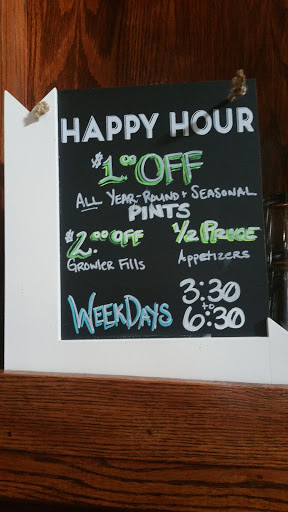 HAPPY HOUR
$1.00 OFF
ALL YEAR-ROUND + SEASONAL
PINTS
$2.00 OFF 1/2 PRICE
GROWLER FILLS APPETIZERS
WEEKDAYS 3:30 to 6:30